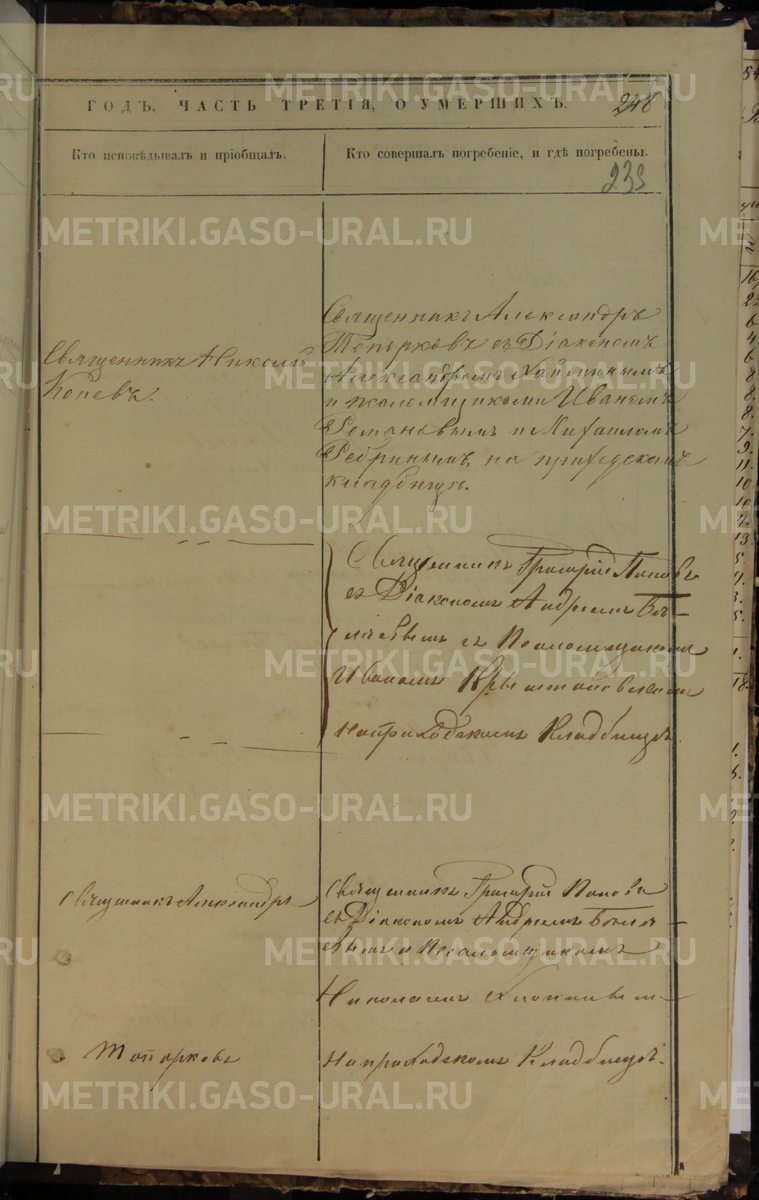 ГОДЪ, ЧАСТЬ ТРЕТІЯ, О УМЕРШИХЪ.
248
Кто исповѣдывалъ и пріобщалъ.
Кто совершалъ погребеніе, и гдѣ погребены.
239
Священникъ Николай
Коневъ.
Священникъ Александръ
Топорковъ съ Діакономъ
Александромъ
и псаломщиками Иваномъ
Романовымъ и Михаиломъ
Ребринымъ, на приходскомъ
кладбищѣ.
Священникъ Григорій Поповъ
съ Діакономъ Андреемъ Бѣ-
ляевымъ съ Псаломщикомъ
Иваномъ
На приходскомъ Кладбищѣ.
Священникъ Александръ
Топорковъ
Священникъ Григорій Поповъ
съ Діакономъ Андреемъ Бѣля-
евымъ и Псаломщикомъ
Николаемъ
На приходскомъ Кладбищѣ.
METRIKI.GASO-URAL.RU